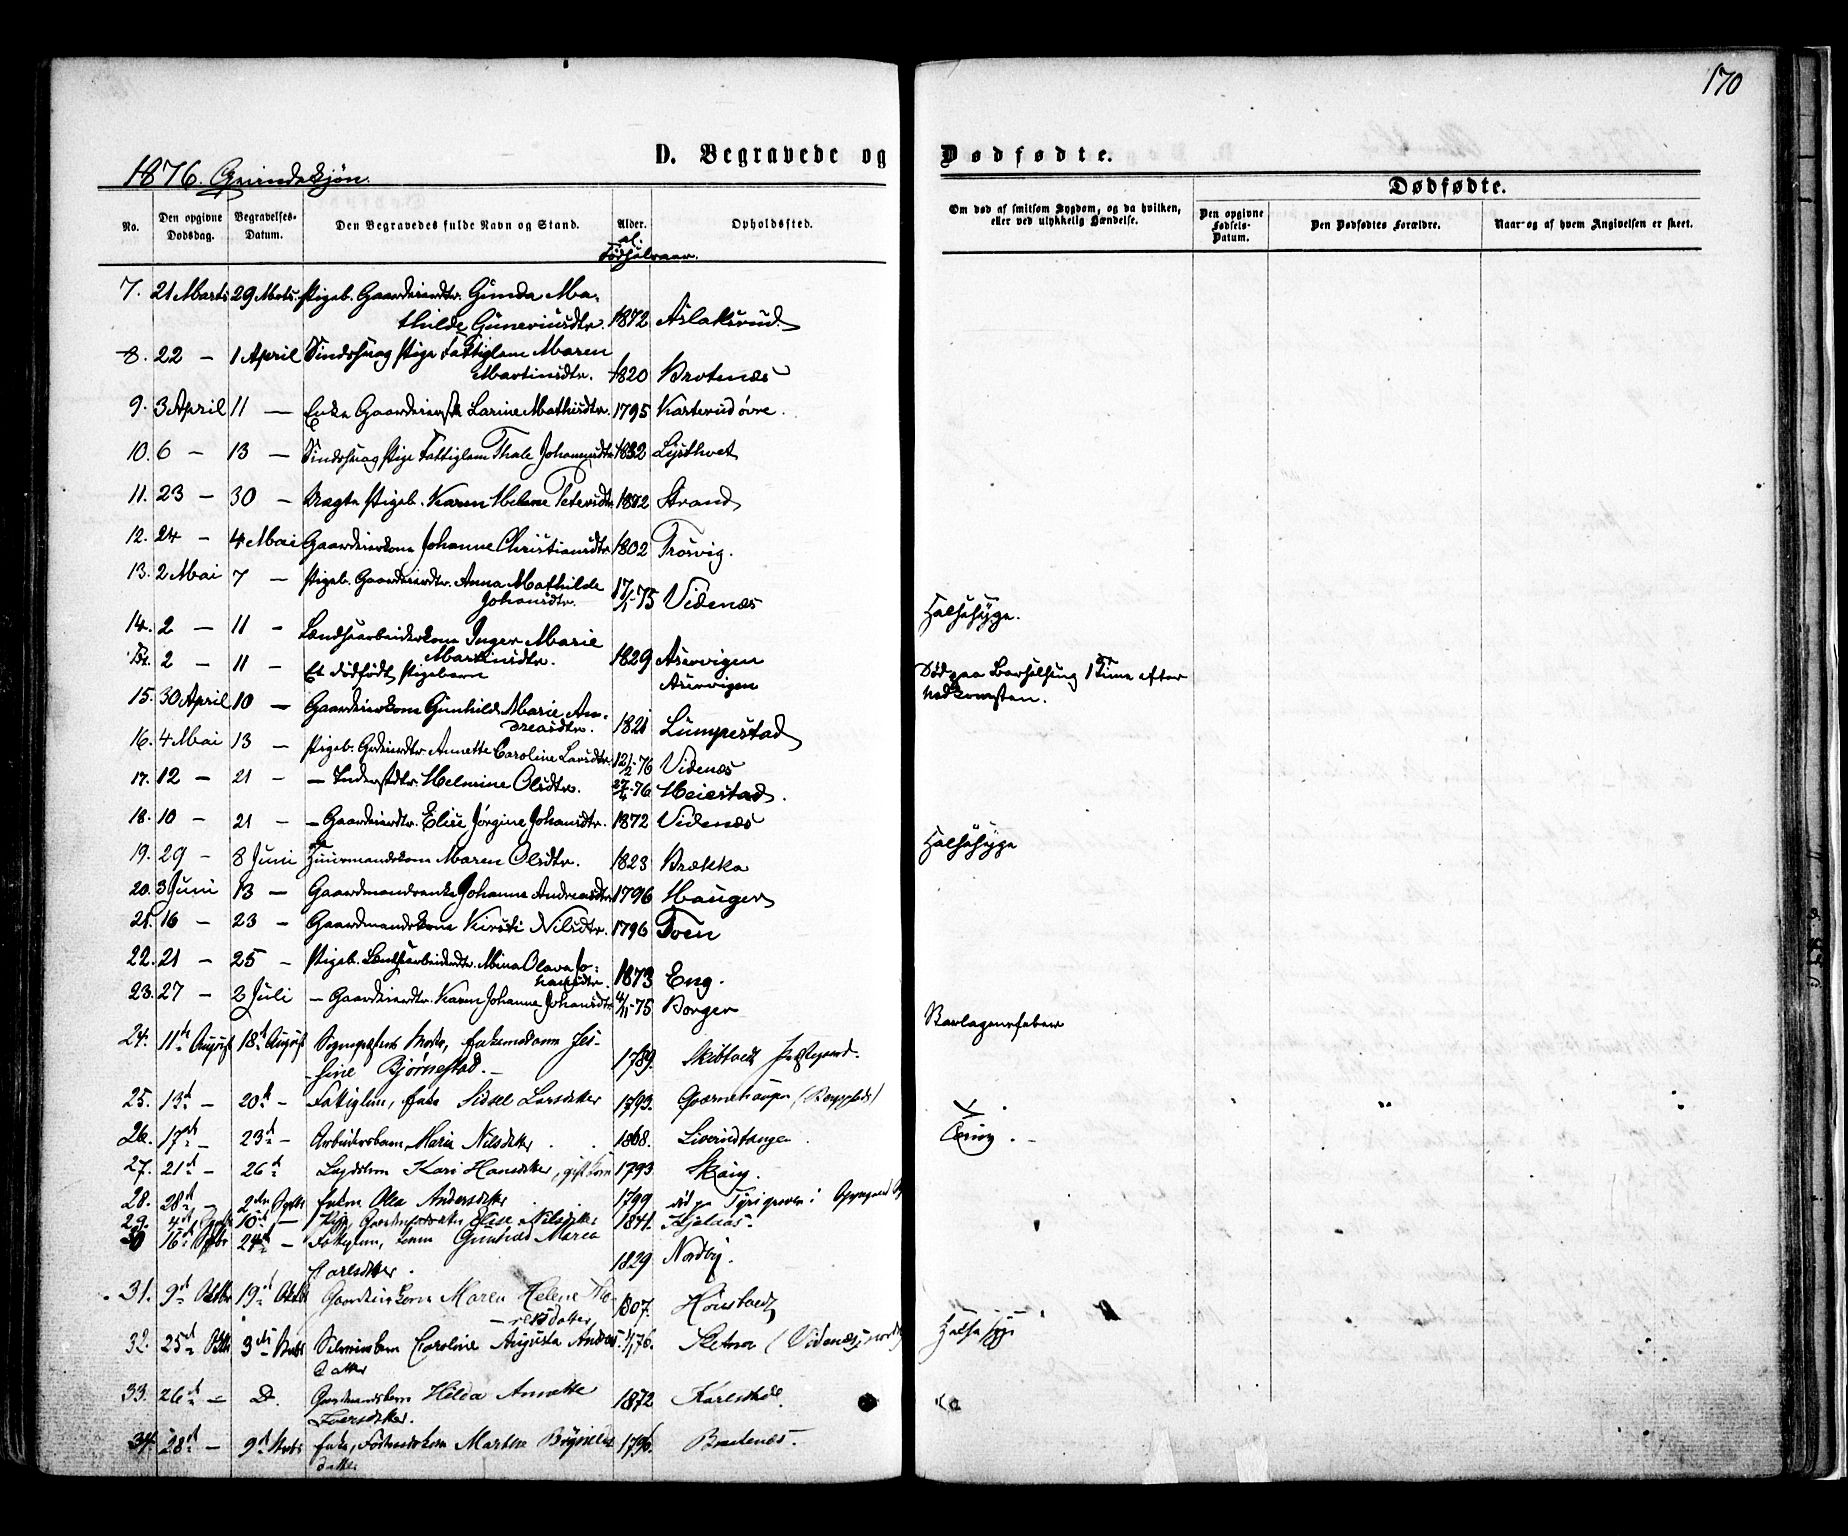 170
D. Begravede og Dødfødte.
1876. Qvindekjøn.
Dødfødte.
No. Den opgivne Dødsdag. Begravelses-Datum. Den Begravedes fulde Navn og Stand. Alder. Opholdsted. Om død af smitsom Sygdom, og da hvilken, eller ved ulykkelig Hændelse. Den opgivne Fødsels-Datum. Den Dødfødtes Forældre. Naar og af hvem Angivelsen er skeet.
al. Fødselsaar.
7. 21 Marts 29 Mots. Pigeb. Gaardeierdtr. Gunda Ma-
thilde Guneriusdtr. 1872 Aslaksrud
8. 22 – 1 April Sindssvag Pige Fattiglem Maren
Martinsdtr. 1820 Brotnæs
9. 3 April 11 – Enke Gaardeierske Larine Mathisdtr. 1795 Karterud øvre.
10. 6 – 13 – Sindssvag Pige Fattiglem Thale Johannesdtr 1832 Lysthvet
11. 23 – 30 – Uægte Pigeb. Karen Helene Petersdtr 1872 Strand
12. 24 – 4 Mai Gaardeierkone Johanne Christiansdtr 1802 Trosvig.
13. 2 Mai 7 – Pigeb. Gaardeierdtr. Anna Mathilde
Johansdtr. 17/1-75 Videnæs Halssyge.
14. 2 – 11 – Landsearbeiderkone Inger Marie
Martinsdtr. 1829 Aservigen Død paa Barselseng 1 Time efter
2 – 11 – Et dødfødt Pigebarn Aservigen Nedkomsten.
15. 30 April 10 – Gaardeierkone Gunhild Marie An-
dreasdtr. 1821 Lumpestad
16. 4 Mai 13 – Pigeb. Grdeierdtr. Annette Caroline Larsdtr. 12/2-76 Videnæs
17. 12 – 21 – – Inderstdtr. Helmine Olsdtr. 27/4-76 Heiestad.
18. 10 – 21 – – Gaardeierdtr. Elise Jørgine Johansdtr. 1872 Videnæs Halssyge
19. 29 – 8 Juni Huusmandskone Maren Olsdtr. 1823 Brækka
20. 3 Juni 13 – Gaardmandsenke Johanne Andreasdtr 1796 Hauger
21. 16 – 23 – Gaardmandskone Kirsti Nilsdtr. 1796 Toen
22. 21 – 25 – Pigeb. Landsearbeiderdtr. Mina Olava Jo-
hansdtr. 1873 Eng.
23. 27 – 2 Juli – Gaardeierdtr. Karen Johanne Johansdtr 4/11-75 Borger Skarlagensfeber
24. 11te August 18de August Sognepræstens Moder, Enkemadame Jes-
sine Bjørnestad. – 1789. Skibtvedt Præstegaard.
25. 13de – 20de – Fattiglem, Enke Sidsel Larsdatter 1793.
26. 17de – 23de – Arbeidersbarn Maria Nilsdatter 1868.
27. 21de – 26de Lægdslem Kari Hansdatter, gift Kone 1793. Skaug.
28. 28de – 2den Septbr Enkem. Olea Andersdatter 1799
29. 4de Septbr 10de – Elise Nilsdatter 1841. Kjølaas.
30 16de Septbr 24de – Fattiglem, Gunhild Maria
Carlsdatter. 1829 Nordby.
31. 9de Oktbr 19de Oktbr Gaardeierkone Maren Helene Tho-
resdatter 1807. Hønstvedt
32. 25de Oktbr 3die Novbr Caroline Augusta Anders-
datter 1/1 76. (Videnæs nordre Halssyge
33. 26de – D. Gaardmandsbarn Hilda Annette
Iversdatter. 1872 Karlstad.
34. 28de – 9de Novbr Enke, Føderaadskone Marthe
datter 1796. Brotenæs.